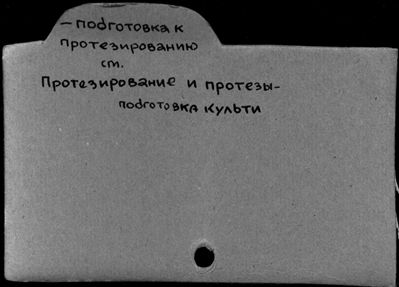 — подготовка к
протезированию
см.
Протезирование и протезы-
подготовка культи